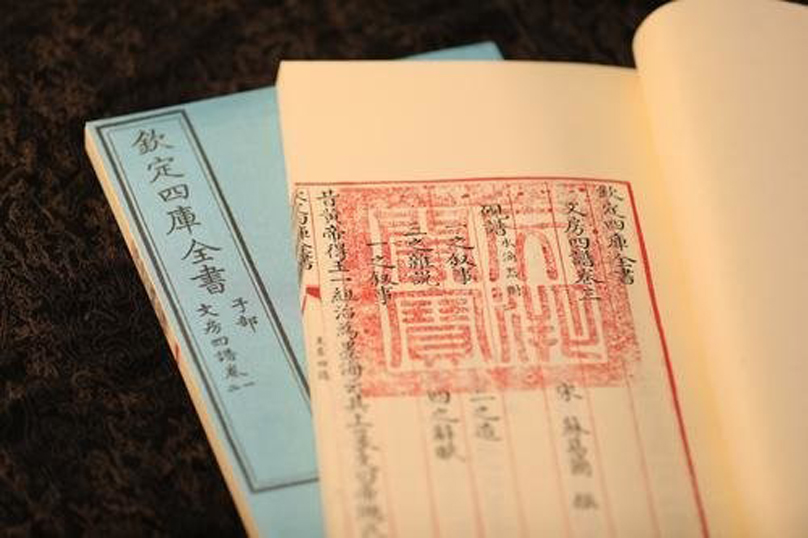 欽定四庫全書
子部
文房四譜卷一
二
欽定四庫全書
文房四譜卷三
宋 蘇易簡 撰
硯譜水滴器附
一之叙事
二之造
三之雜說
四之辭賦
一之叙事
昔黃帝得玉一紐治為墨海云其上篆文曰帝鴻氏